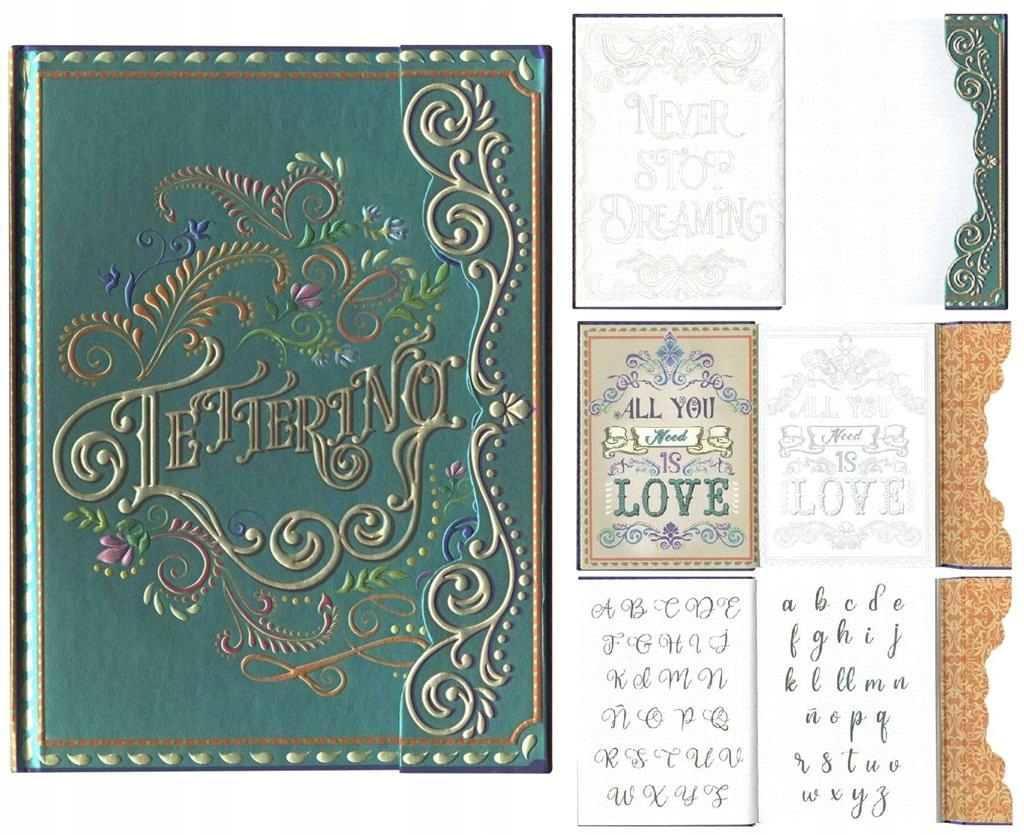 LETTERING
NEVER
STOP
DREAMING
ALL YOU
Need
IS
LOVE
ALL YOU
Need
IS
LOVE
A B C D E
F G H I J
K L M N
Ñ O P Q
R S T U V
W X Y Z
a b c d e
f g h i j
k l ll m n
ñ o p q
r s t u v
w x y z